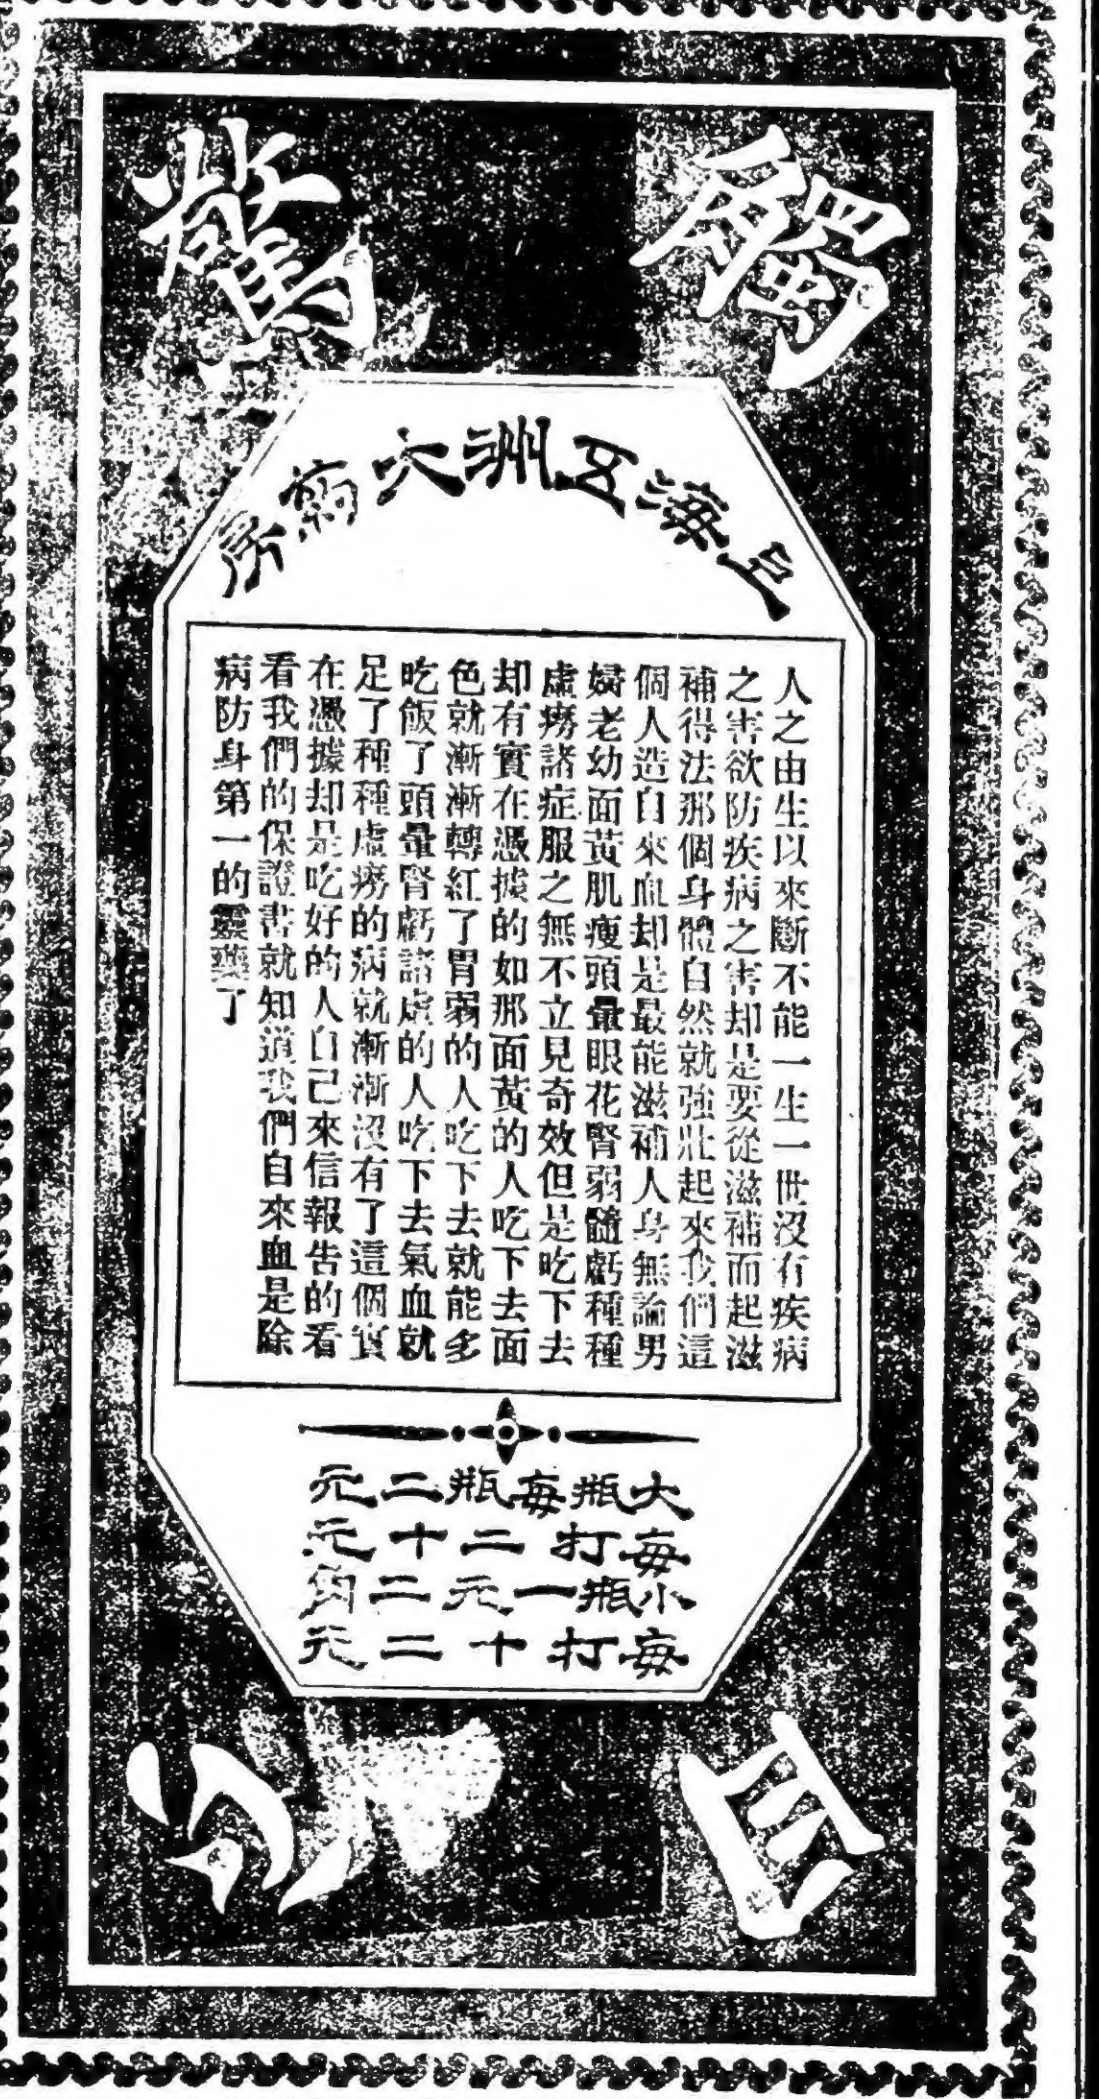 觸目
驚心
上海五洲大藥房
人之由生以來斷不能一生一世沒有疾病
之害欲防疾病之害却是要從滋補而起滋
補得法那個身體自然就強壯起來我們這
個人造自來血却是最能滋補人身無論男
婦老幼面黃肌瘦頭暈眼花腎弱髓虧種種
虛癆諸症服之無不立見奇效但是吃下去
却有實在憑據的如那面黃的人吃下去面
色就漸漸轉紅了胃弱的人吃下去就能多
吃飯了頭暈腎虧諸虛的人吃下去氣血就
足了種種虛癆的病就漸漸沒有了這個實
在憑據却是吃好的人自己來信報告的看
看我們的保證書就知道我們自來血是除
病防身第一的靈藥了
大瓶每瓶二元
每打二十元
小瓶一元二角
每打十二元